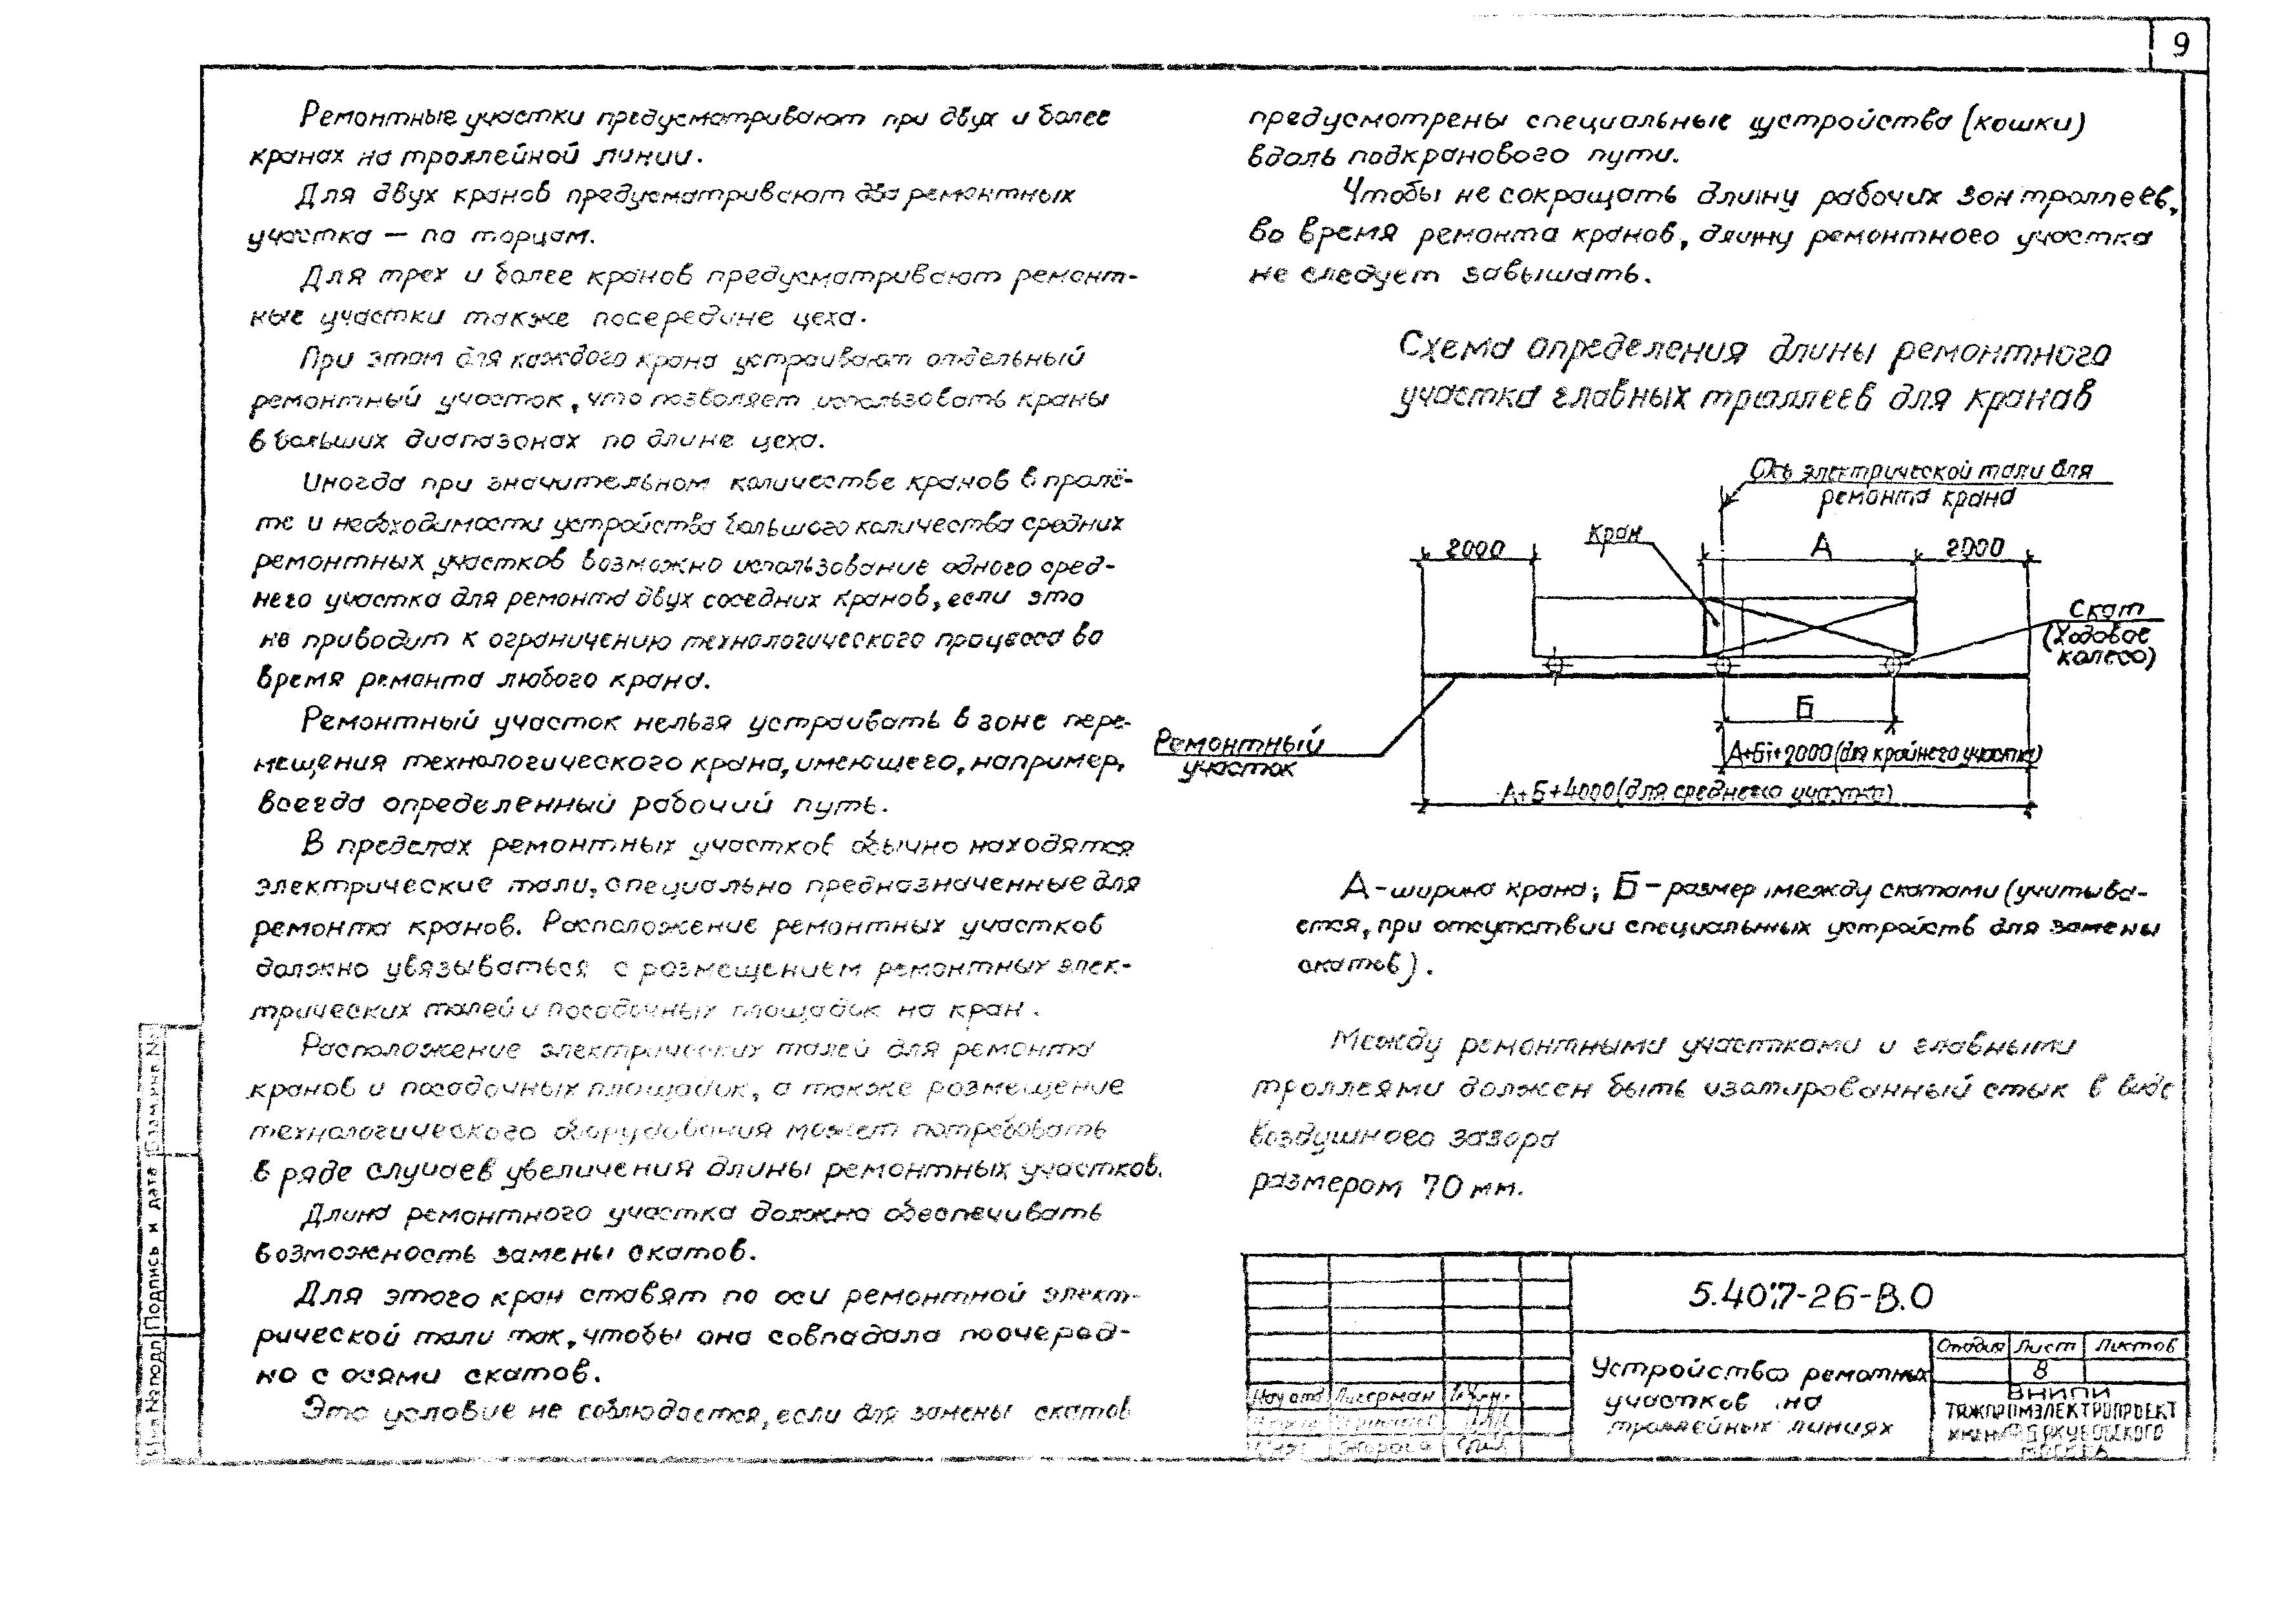 9
Ремонтные участки предусматривают при двух и более
кранах на троллейной линии.
Для двух кранов предусматривают два ремонтных
участка — по торцам.
Для трех и более кранов предусматривают ремонт-
ные участки также посередине цеха.
При этом для каждого крана устраивают отдельный
ремонтный участок, что позволяет использовать краны
в больших диапазонах по длине цеха.
Иногда при значительном количестве кранов в пролё-
те и необходимости устройства большого количества средних
ремонтных участков возможно использование одного сред-
него участка для ремонта двух соседних кранов, если это
не приводит к ограничению технологического процесса во
время ремонта любого крана.
Ремонтный участок нельзя устраивать в зоне пере-
мещения технологического крана, имеющего, например,
всегда определенный рабочий путь.
В пределах ремонтных участков обычно находятся
электрические тали, специально предназначенные для
ремонта кранов. Расположение ремонтных участков
должно увязываться с размещением ремонтных элек-
трических талей и посадочных площадок на кран.
Расположение электрических талей для ремонта
кранов и посадочных площадок, а также размещение
технологического оборудования может потребовать
в ряде случаев увеличения длины ремонтных участков.
Длина ремонтного участка должна обеспечивать
возможность замены скатов.
Для этого кран ставят по оси ремонтной элект-
рической тали так, чтобы она совпадала поочеред-
но с осями скатов.
Это условие не соблюдается, если для замены скатов
предусмотрены специальные устройства (кошки)
вдоль подкранового пути.
Чтобы не сокращать длину рабочих зон троллеев,
во время ремонта кранов, длину ремонтного участка
не следует завышать.
Схема определения длины ремонтного
участка главных троллеев для кранов
Ось электрической тали для
ремонта крана
2000
Кран
А
2000
Скат
(Ходовое
колесо)
Б
Ремонтный
участок
А+Б+2000 (для крайнего участка)
А+Б+4000 (для среднего участка)
А – ширина крана; Б – размер между скатами (учитыва-
ется, при отсутствии специальных устройств для замены
скатов).
Между ремонтными участками и главными
троллеями должен быть изолированный стык в виде
воздушного зазора
размером 70 мм.
5.407-26-В.0
Устройство ремотных
участков на
троллейных линиях
Стадия Лист Листов
8
ВНИПИ
ТЯЖПРОМЭЛЕКТРОПРОЕКТ
ИМЕНИ Ф.Б.ЯКУБОВСКОГО
МОСКВА
Нач отд Лигерман
Инв № подл Подпись и дата Взам инв №